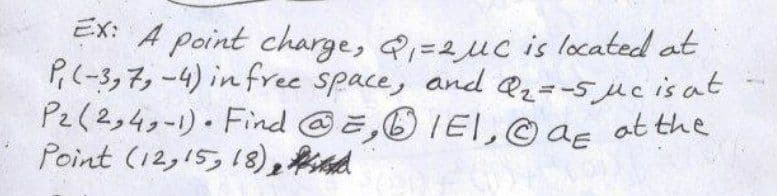 Ex: A point charge, Q₁=2μC is located at
P₁(-3,7,-4) in free space, and Q₂=-5μc is at
P2(2,4,-1). Find ⓐ E̅, ⓑ |E|, ⓒ aE at the
Point (12,15,18),